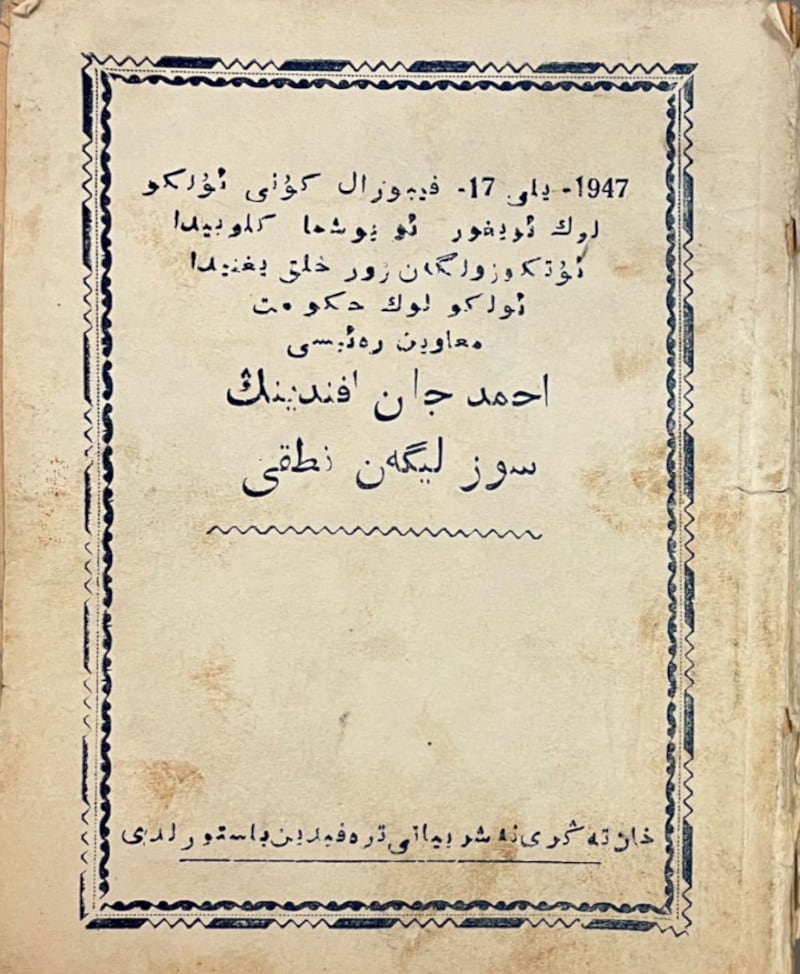 1947- يلى 17- فيۋرال كۇنى ئۇلكو
لوك ئويغور ئو يوشما كلوبيدا
ئۇتكوزولگەن زور خلق يغنيدا
ئولكو لوك حكو مت
معاوين رەئيسى
احمد جان افندينىڭ
سوز ليگەن نطقى
خان تە ڭرى نە شر يياتى تره فيدين باستو ر لدى